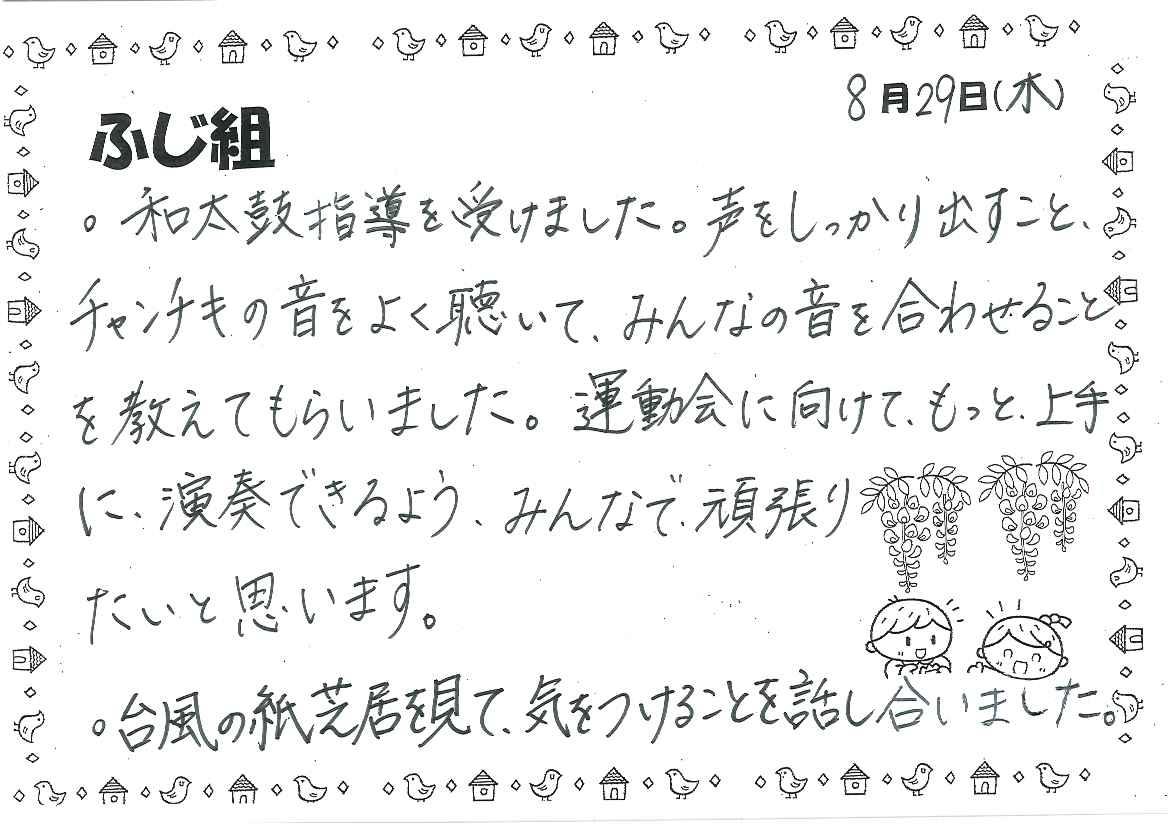 8月29日(木)
ふじ組
。和太鼓指導を受けました。声をしっかり出すこと、
チャンチキの音をよく聴いて、みんなの音を合わせること
を教えてもらいました。運動会に向けて、もっと、上手
に、演奏できるよう、みんなで、頑張り
たいと思います。
。台風の紙芝居を見て、気をつけることを話し合いました。